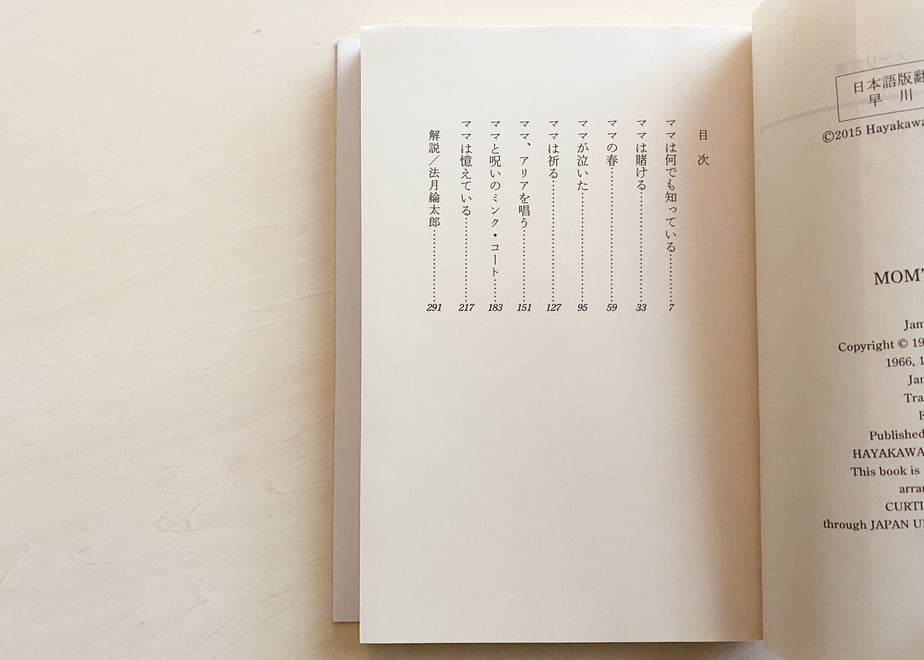 日本語版翻
早川
©2015 Hayakawa
MOM'
Copyright © 19
1966, 1
Published
HAYAKAWA
This book is
CURTI
through JAPAN U
目次
ママは何でも知っている……………7
ママは賭ける……………33
ママの春……………59
ママが泣いた……………95
ママは祈る……………127
ママ、アリアを唱う……………151
ママと呪いのミンク・コート……………183
ママは憶えている……………217
解説／法月綸太郎……………291